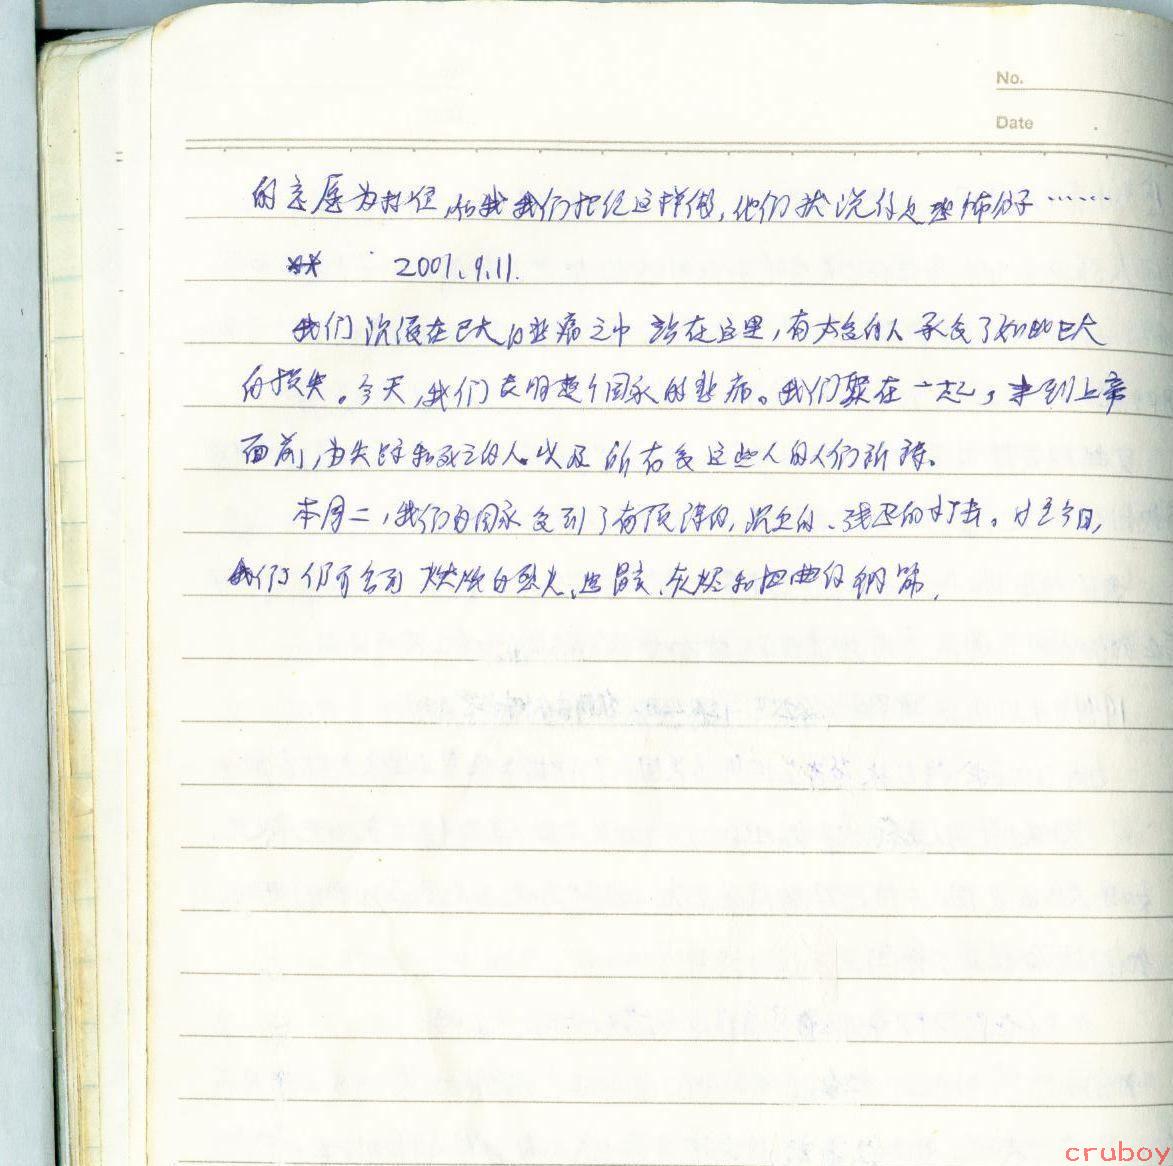 No.
Date
的意愿为 我们 这样做,他们就 是恐怖分子……
2001.9.11.
我们沉浸在巨大的悲痛之中 站在这里,有太多的人承受了如此巨大
的损失。今天,我们表明整个国家的悲痛。我们聚在一起,来到上帝
面前,为失踪和死亡的人。以及所有爱这些人的人们祈祷。
本周二,我们的国家受到了有预谋的,沉重的、残忍的打击。时至今日,
我们仍可看到燃烧的烈火、 灰烬和扭曲的钢筋,
cruboy